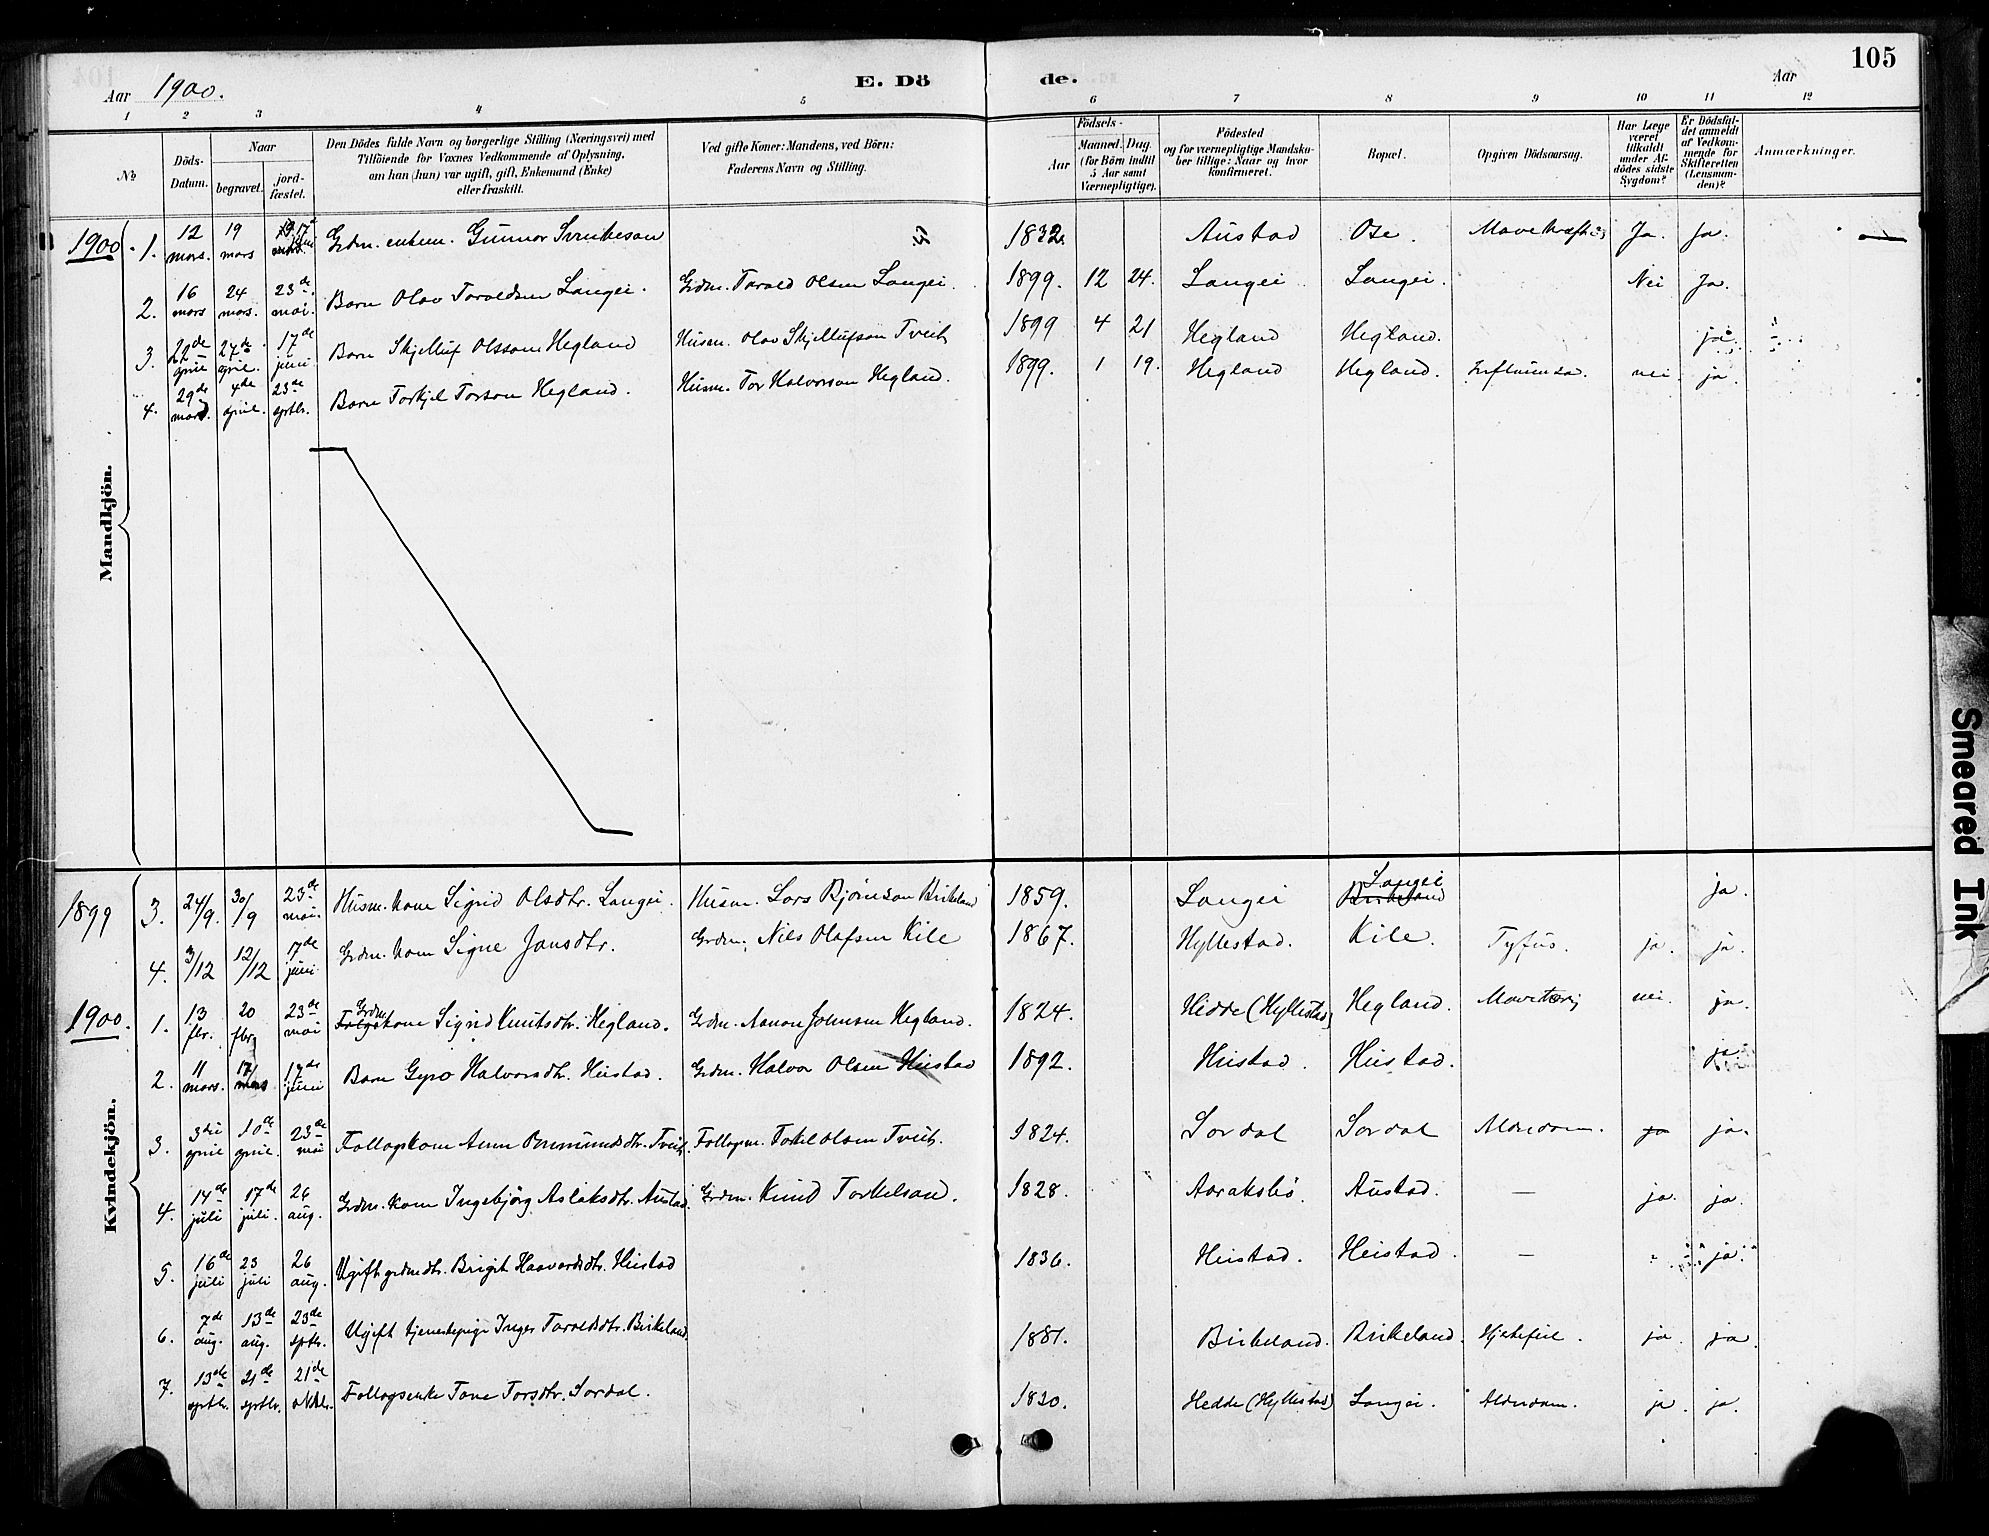 105
Aar 1900. E. Dö de. Aar
1 2 3 4 5 6 7 8 9 10 11 12
No Döds-Datum. Naar begravet. jord-fæstet. Den Dödes fulde Navn og borgerlige Stilling (Næringsvei) med Tilföiende for Voxnes Vedkommende af Oplysning, om han (hun) var ugift, gift, Enkemand (Enke) eller fraskilt. Ved gifte Koner: Mandens, ved Börn: Faderens Navn og Stilling. Födsels- Aar Maaned. Dag. (for Börn indtil 5 Aar samt Værnepligtige). Födested og for værnepligtige Mandsku-ber tillige: Naar og hvor konfirmeret. Bopæl. Opgiven Dödsaarsag. Har Læge været tilkaldt under Af-dödes sidste Sygdom? Er Dödsfal-det anmeldt af Vedkom-mende for Skifteretten (Lensman-den)? Anmærkninger.
Mandkjön.
1900 1. 12 mars. 19 mars 17 juni Grdm. enkem. Gunnar Svenkeson 1832. Austad Ose. Mavekræft Ja. Ja.
2. 16 mars 24 mars. 23de mai. Barn Olav Taraldsen Langei. Grdm. Tarald Olsen Langei. 1899. 12 24. Langei Langei. Nei Ja.
3. 22de april 27de april. 17de juni. Barn Skjelluf Olsson Hegland Husm. Olav Skjellufson Tveit 1899 4 21 Hegland Hegland. ja.
4. 29de mars. 4de april. 23de septbr. Barn Torkjel Torson Hegland. Husm. Tor Halvorson Hegland. 1899. 1 19. Hegland Hegland. Influensa. nei ja.
Kvindekjön.
1899 3. 24/9. 30/9 23de mai. Husm. kone Sigrid Olsdtr. Langei. Husm. Lars Bjørnson Birkeland 1859. Langei Langei Birkeland ja.
4. 3/12 12/12 17de juni. Grdm. kone Signe Jonsdtr. Grdm. Nils Olafsen Kile 1867. Hyllestad. Kile. Tyfus. ja. ja.
1900. 1. 13 fbr. 20 fbr. 23de mai Grdm. kone Sigrid Knutsdtr. Hegland. Grdm. Aanon Johnsen Hegland. 1824. Hidde (Hyllestad) Hegland. nei. ja.
2. 11 mars. 17 mars 17de juni Barn Gyro Halvorsdtr. Heistad. Grdm. Halvor Olsen Heistad 1892. Heistad. Heistad. ja
3. 3die april 10de april. 23de mai Follogskone Anne Tveit. Follogsm. Torkel Olsen Tveit. 1824. Sordal Sordal Alderdom. ja ja.
4. 14de juli 17de juli. 26 aug. Grdm. kone Ingebjörg Aslaksdtr. Austad. Grdm. Knud Torkelson. 1828. Aaraksbø. Austad. — ja. ja.
5. 16de juli 23 juli 26 aug. Ugift grdmdtr. Brigit Haavardsdtr. Heistad 1836. Heistad. Heistad. — " ja.
6. 7de aug. 13de aug. 23de septbr. Ugift tjenestepige Inger Taraldsdtr. Birkeland. 1881. Birkeland. Birkeland. Hjertefeil. ja. ja
7. 13de septbr. 21de septbr. 21de oktbr. Follogsenke Tone Torsdtr. Sordal. 1830. Hedde (Hyllestad) Langei. Alderdom. ja. ja.
Smeared Ink